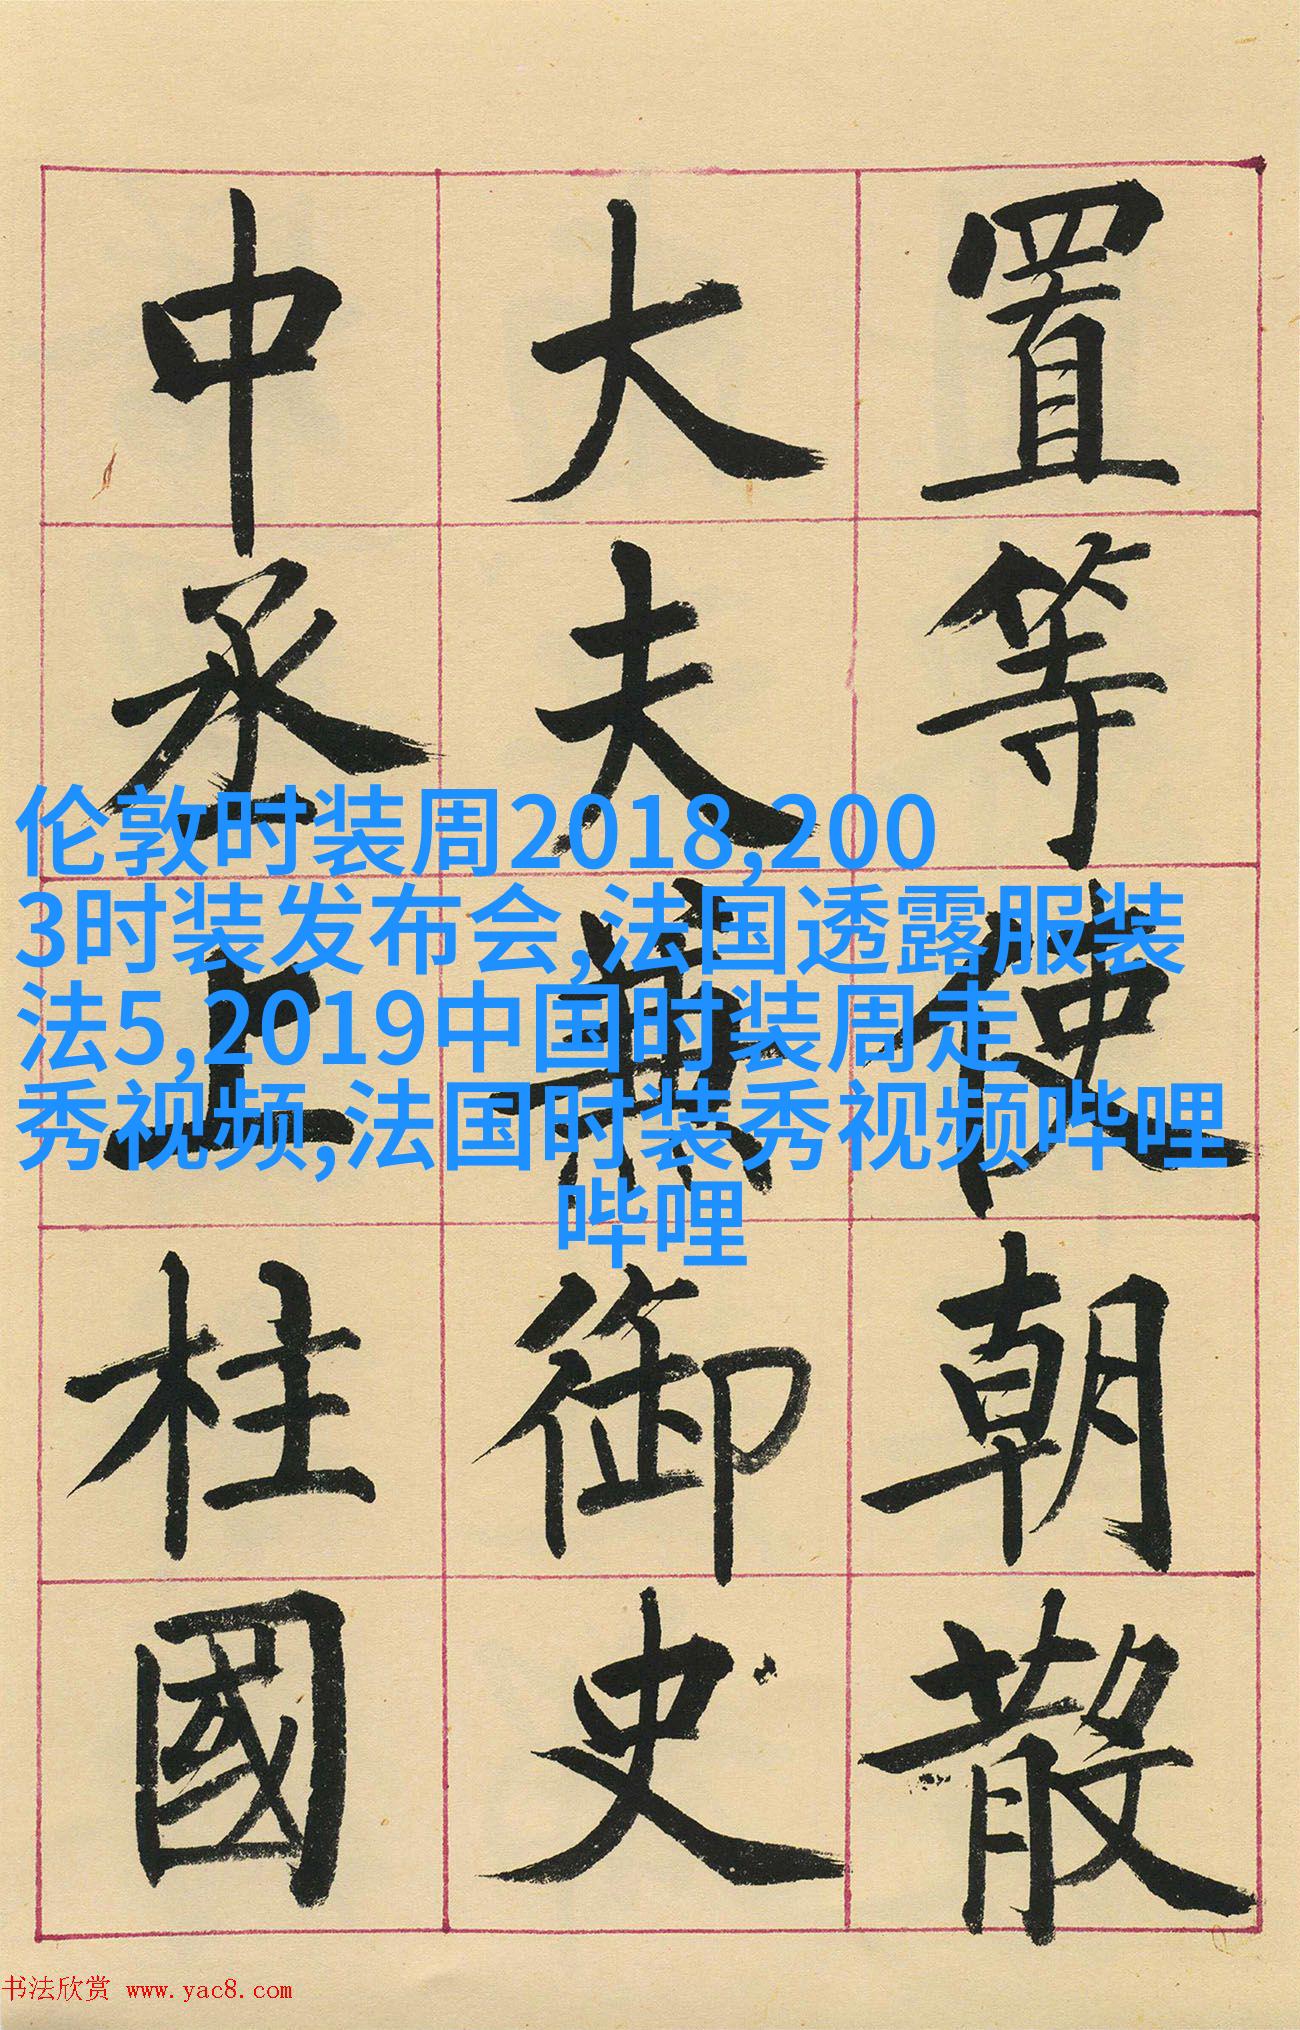 置等使朝散
大夫兼御史
中丞上柱國
伦敦时装周2018,200
3时装发布会,法国透露服装
法5,2019中国时装周走
秀视频,法国时装秀视频哔哩
哔哩
书法欣赏 www.yac8.com